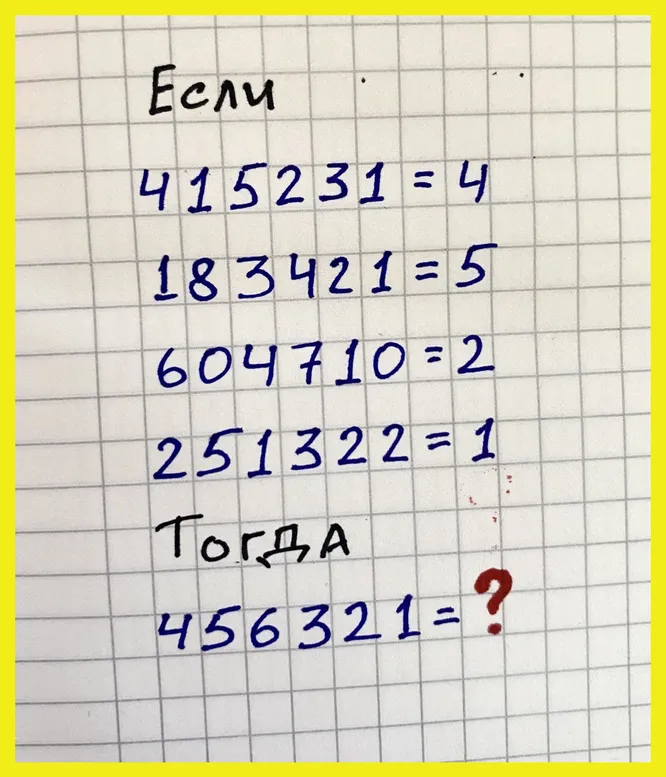 Если
415231 = 4
183421 = 5
604710 = 2
251322 = 1
Тогда
456321 = ?